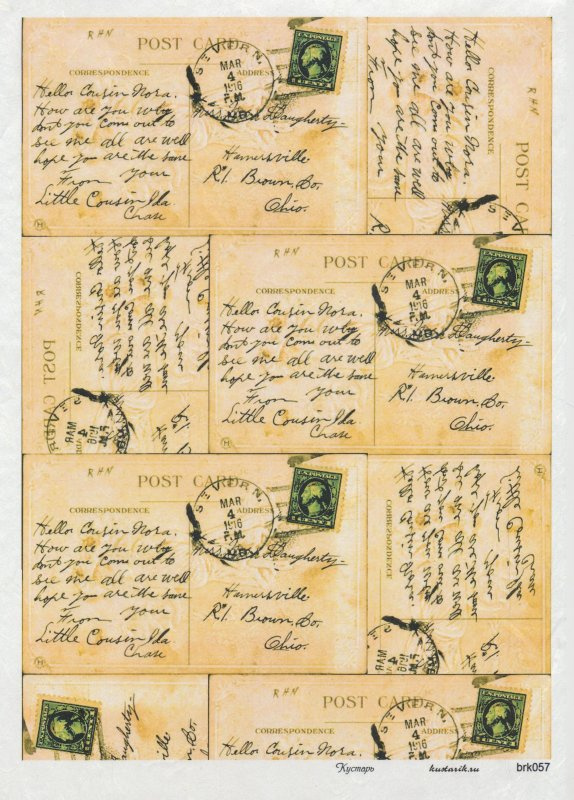 RHN
POST CARD
CORRESPONDENCE
ADDRESS
MAR
4
1916
P.M.
U.S. POSTAGE
Hello Cousin Nora.
How are you why
dont you come out to
see me all are well
hope you are the same
From your
Little Cousin Ida
Chase
Daugherty
Hamersville
R1 Brown, Co.
Ohio.
Hello Cousin Nora.
How are you why
dont you come out to
see me all are well
hope you are the same
From your
RHN
POST CARD
CORRESPONDENCE
RHN
POST CARD
CORRESPONDENCE
MAR
4
1916
P.M.
POST CARD
CORRESPONDENCE
ADDRESS
MAR
4
1916
P.M.
U.S. POSTAGE
Hello Cousin Nora.
How are you why
dont you come out to
see me all are well
hope you are the same
From your
Little Cousin Ida
Chase
Daugherty
Hamersville
R1 Brown, Co.
Ohio.
RHN
POST CARD
CORRESPONDENCE
ADDRESS
MAR
4
1916
P.M.
U.S. POSTAGE
Hello Cousin Nora.
How are you why
dont you come out to
see me all are well
hope you are the same
From your
Little Cousin Ida
Chase
Daugherty
Hamersville
R1 Brown, Co.
Ohio.
CORRESPONDENCE
MAR
4
1916
P.M.
Daugherty
Hamersville
Brown, Co.
RHN
POST CARD
CORRESPONDENCE
ADDRESS
MAR
4
1916
P.M.
U.S. POSTAGE
Hello Cousin Nora.
Daugherty
Кустарь
kustarik.ru
brk057